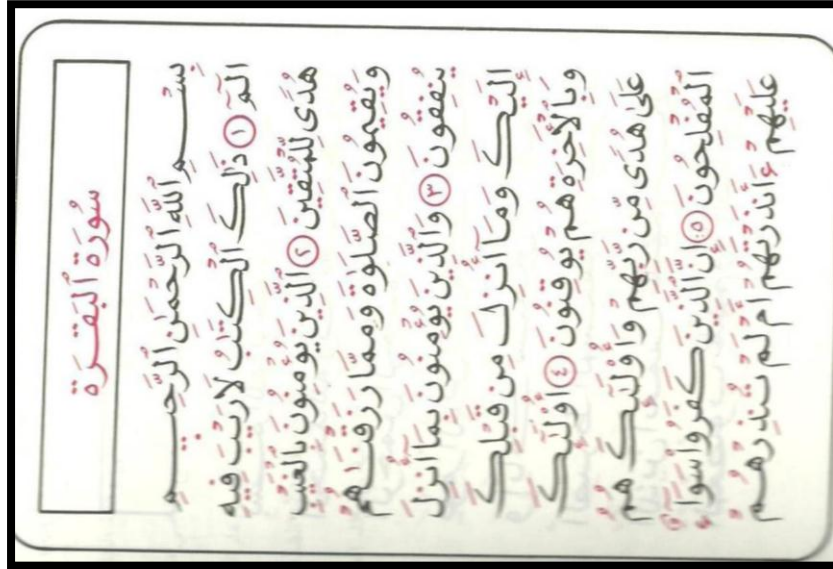 سُورَة ٱلۡبَقَرَة
بِسۡمِ ٱللَّهِ ٱلرَّحۡمَٰنِ ٱلرَّحِيمِ
الٓمٓ ١ ذَٰلِكَ ٱلۡكِتَٰبُ لَا رَيۡبَ فِيهِ
هُدٗى لِّلۡمُتَّقِينَ ٢ ٱلَّذِينَ يُؤۡمِنُونَ بِٱلۡغَيۡبِ
وَيُقِيمُونَ ٱلصَّلَوٰةَ وَمِمَّا رَزَقۡنَٰهُمۡ
يُنفِقُونَ ٣ وَٱلَّذِينَ يُؤۡمِنُونَ بِمَآ أُنزِلَ
إِلَيۡكَ وَمَآ أُنزِلَ مِن قَبۡلِكَ
وَبِٱلۡأٓخِرَةِ هُمۡ يُوقِنُونَ ٤ أُوْلَٰٓئِكَ
عَلَىٰ هُدٗى مِّن رَّبِّهِمۡ وَأُوْلَٰٓئِكَ هُمُ
ٱلۡمُفۡلِحُونَ ٥ إِنَّ ٱلَّذِينَ كَفَرُواْ سَوَآءٌ
عَلَيۡهِمۡ ءَأَنذَرۡتَهُمۡ أَمۡ لَمۡ تُنذِرۡهُمۡ